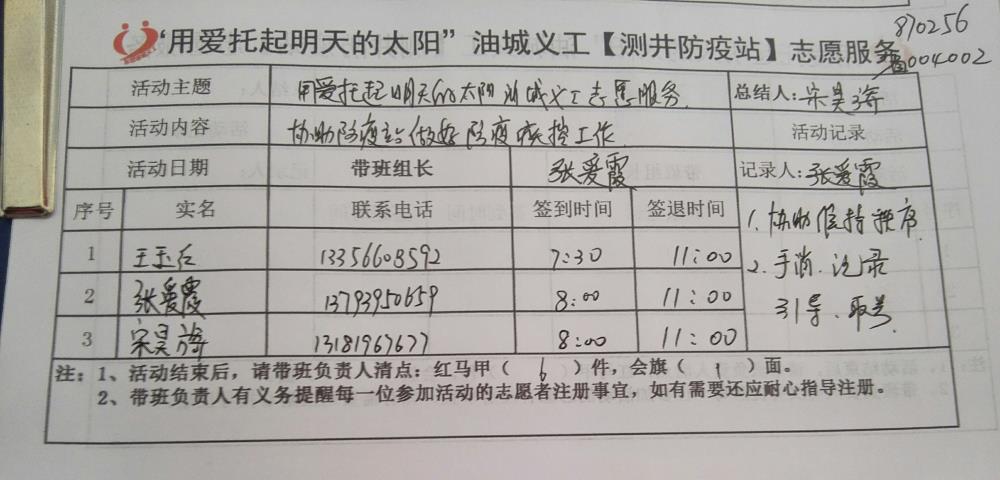 870256
"用爱托起明天的太阳"油城义工【测井防疫站】志愿服务
004002
活动主题 用爱托起明天的太阳油城义工志愿服务 总结人:宋昊
活动内容 协助防疫站做好防疫疾控工作 活动记录
活动日期 带班组长 张爱霞 记录人:张爱霞
序号 实名 联系电话 签到时间 签退时间 1.协助维持秩序
1 王玉红 13356608592 7:30 11:00 2.手消.记录
2 张爱霞 13793950659 8:00 11:00 引导.取号
3 宋昊 13181967677 8:00 11:00
注:1、活动结束后,请带班负责人清点:红马甲( 6 )件,会旗( 1 )面。
2、带班负责人有义务提醒每一位参加活动的志愿者注册事宜,如有需要还应耐心指导注册。